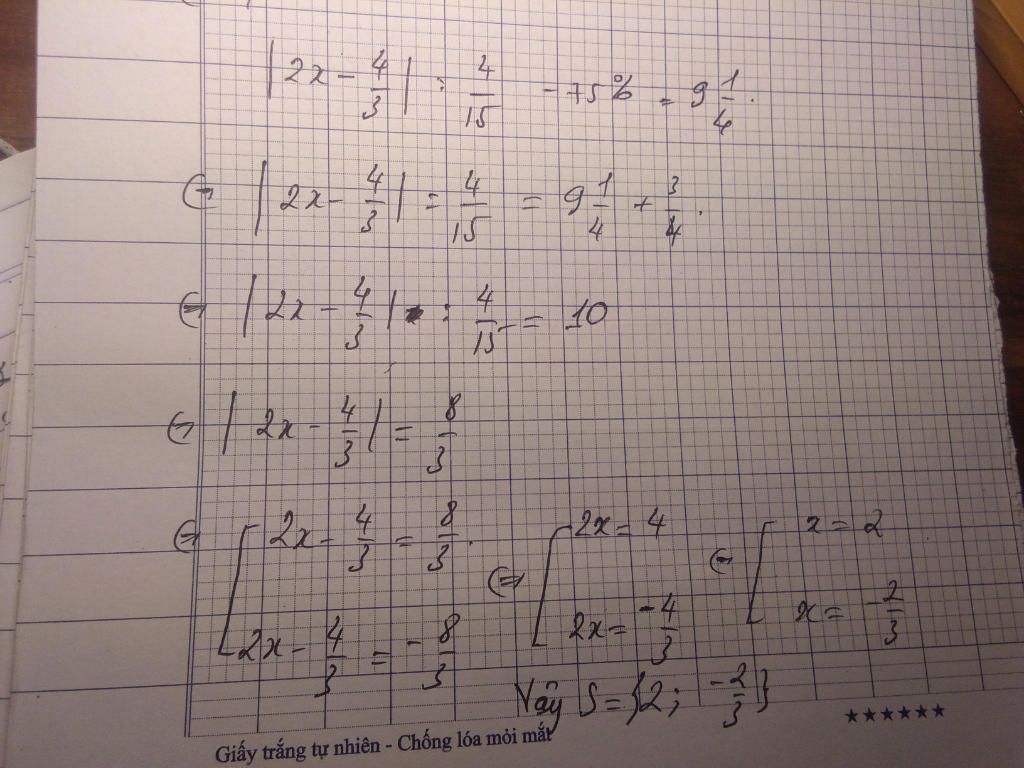 |2x - 4/3| : 4/15 - 75% = 9 1/4.
⇔ |2x - 4/3| : 4/15 = 9 1/4 + 3/4.
⇔ |2x - 4/3| : 4/15 = 10
⇔ |2x - 4/3| = 8/3
⇔ [ 2x - 4/3 = 8/3. ⇔ [ 2x = 4 ⇔ [ x = 2
2x - 4/3 = -8/3 2x = -4/3 x = -2/3
Vậy S = {2; -2/3}
Giấy trắng tự nhiên - Chống lóa mỏi mắt ★★★★★★